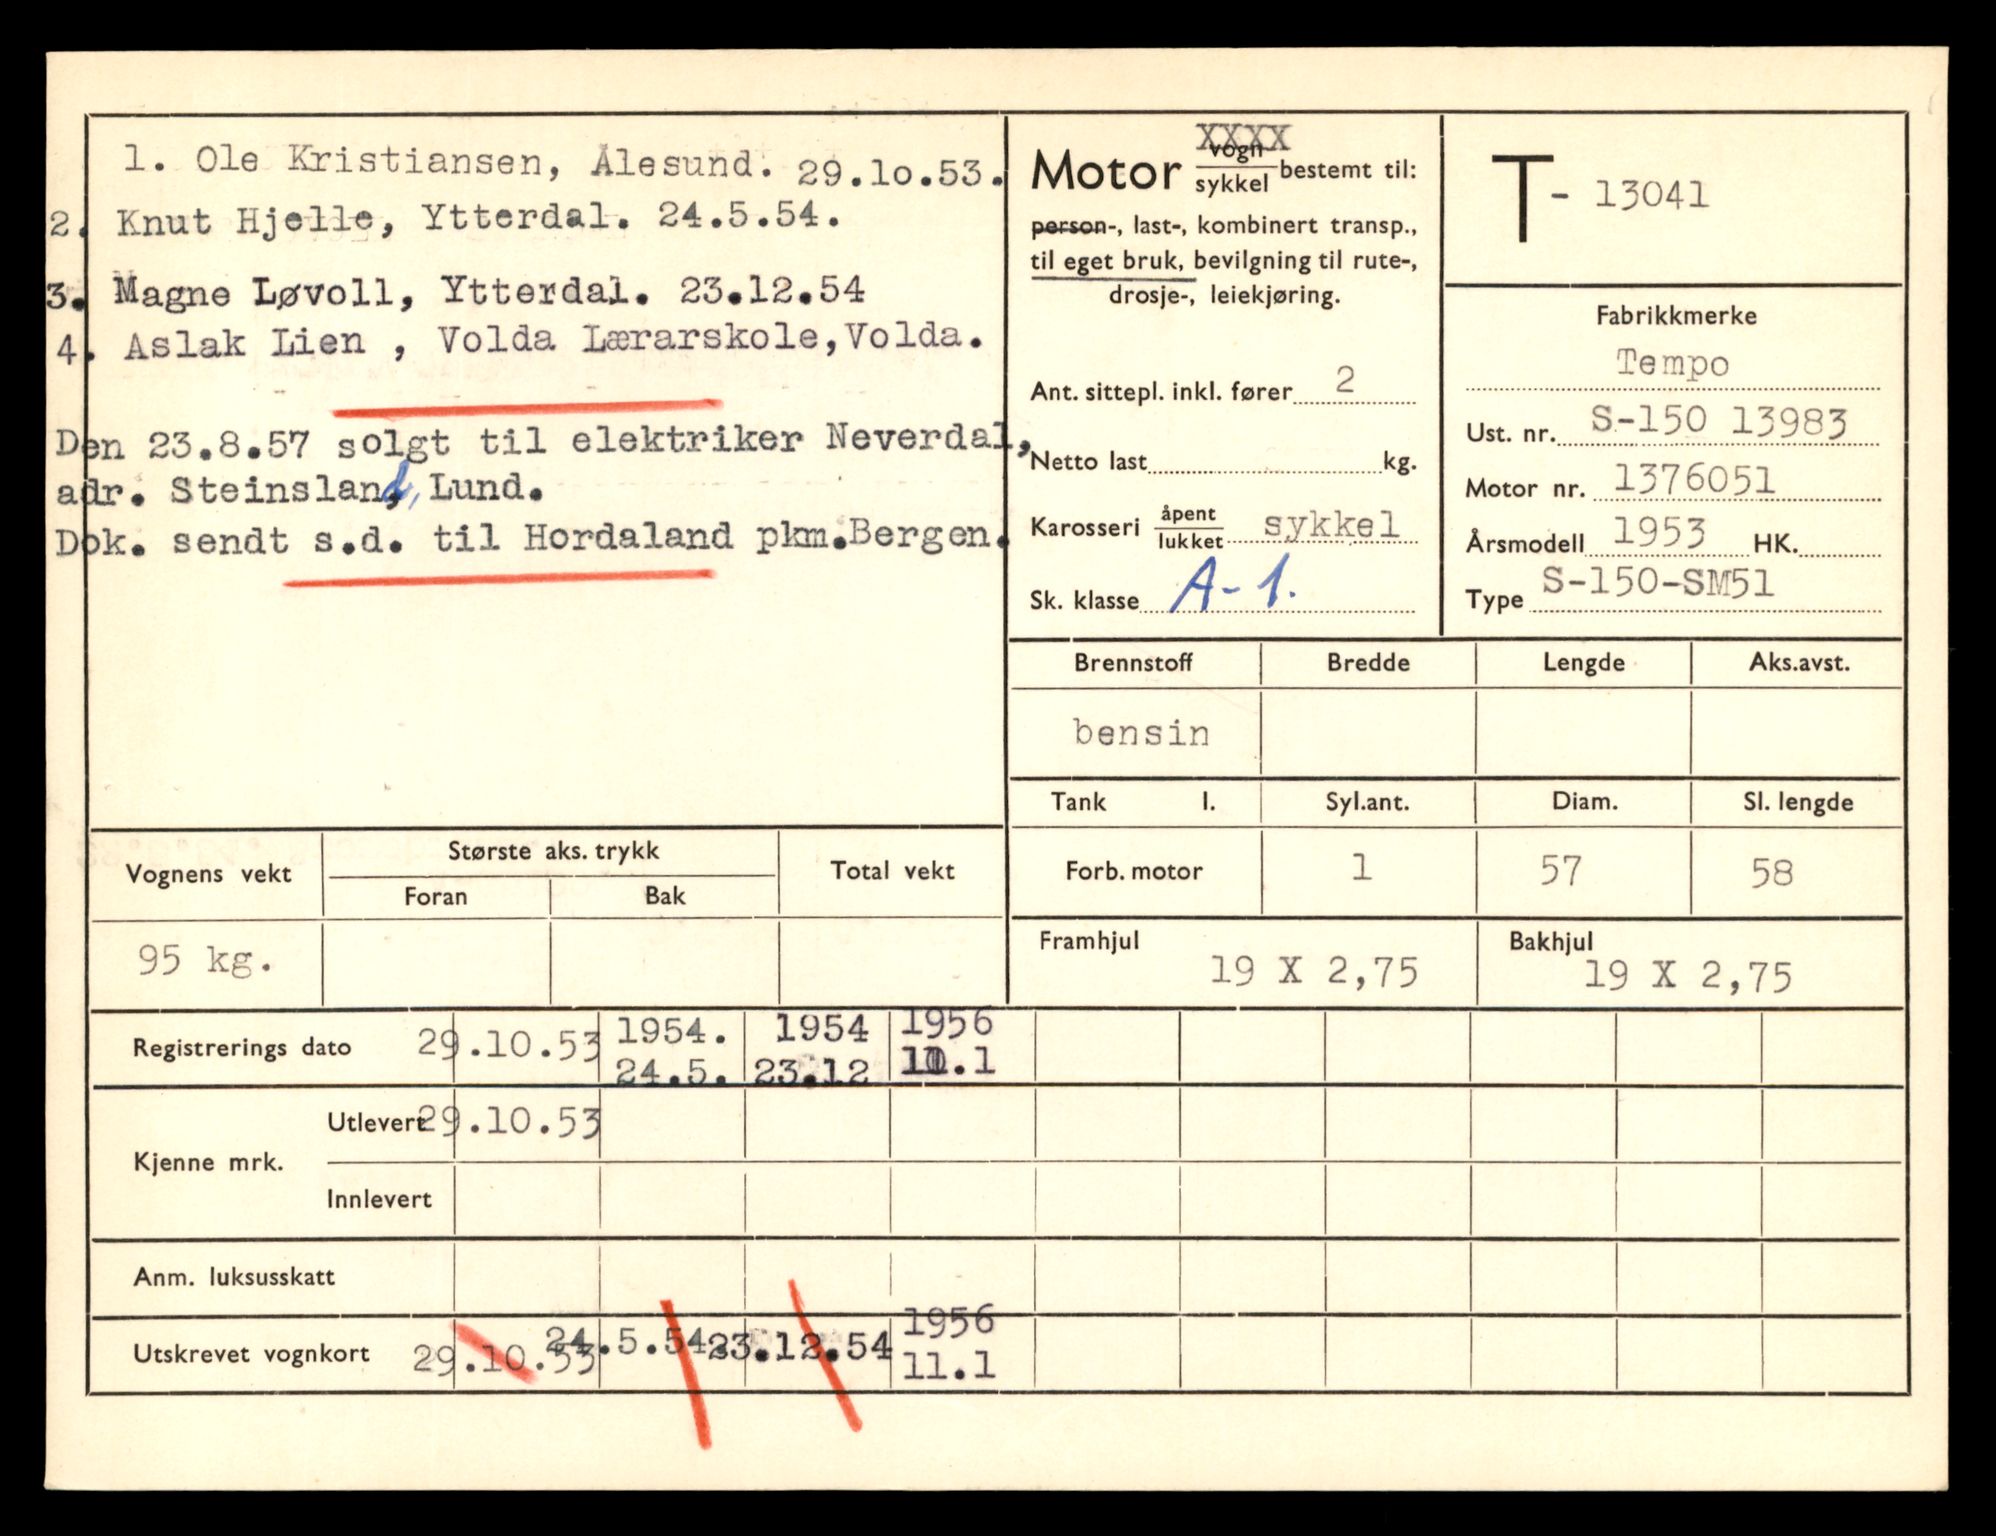 1. Ole Kristiansen, Ålesund. 29.lo.53.
2. Knut Hjelle, Ytterdal. 24.5.54.
3. Magne Løvoll, Ytterdal. 23.12.54
4. Aslak Lien , Volda Lærarskole,Volda.
Den 23.8.57 solgt til elektriker Neverdal,
adr. Steinsland, Lund.
Dok. sendt s.d. til Hordaland pkm.Bergen.
XXXX
Motor vogn sykkel bestemt til:
person-, last-, kombinert transp.,
til eget bruk, bevilgning til rute-,
drosje-, leiekjøring.
Ant. sittepl. inkl. fører 2
Netto last kg.
Karosseri åpent lukket sykkel
Sk. klasse A-1.
T- 13041
Fabrikkmerke
Tempo
Ust. nr. S-150 13983
Motor nr. 1376051
Årsmodell 1953 HK.
Type S-150-SM51
Brennstoff Bredde Lengde Aks.avst.
bensin
Tank l. Syl.ant. Diam. Sl. lengde
Forb. motor 1 57 58
Framhjul 19 X 2,75 Bakhjul 19 X 2,75
Vognens vekt Største aks. trykk Total vekt
Foran Bak
95 kg.
Registrerings dato 29.10.53 1954. 24.5. 1954 23.12 1956 11.1
Kjenne mrk. Utlevert 29.10.53
Innlevert
Anm. luksusskatt
Utskrevet vognkort 29.10.53 24.5.54. 23.12.54 1956 11.1